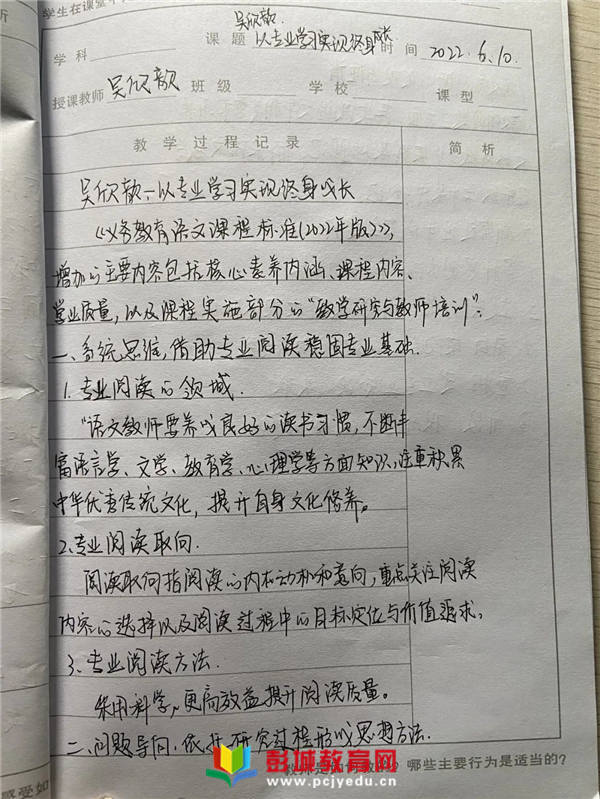 学生在课堂中
吴欣歆
学科 课题 以专业学习实现终身成长 时间 2022.6.10.
授课教师 吴欣歆 班级 学校 课型
教学过程记录 简析
吴欣歆:以专业学习实现终身成长
《义务教育语文课程标准(2022年版)》,
增加的主要内容包括核心素养内涵、课程内容、
学业质量,以及课程实施部分的“教学研究与教师培训”:
一、系统思维,借助专业阅读稳固专业基础.
1.专业阅读的领域.
“语文教师要养成良好的读书习惯,不断丰
富语言学、文学、教育学、心理学等方面知识,注重积累
中华优秀传统文化,提升自身文化修养。
2.专业阅读取向.
阅读取向指阅读的内在动机和意向,重点关注阅读
内容的选择以及阅读过程中的目标定位与价值追求。
3.专业阅读方法.
采用科学、更高效益提升阅读质量。
二、问题导向,依托研究过程形成思想方法.
哪些主要行为是适当的?
感受如
彭城教育网
www.pcjyedu.cn